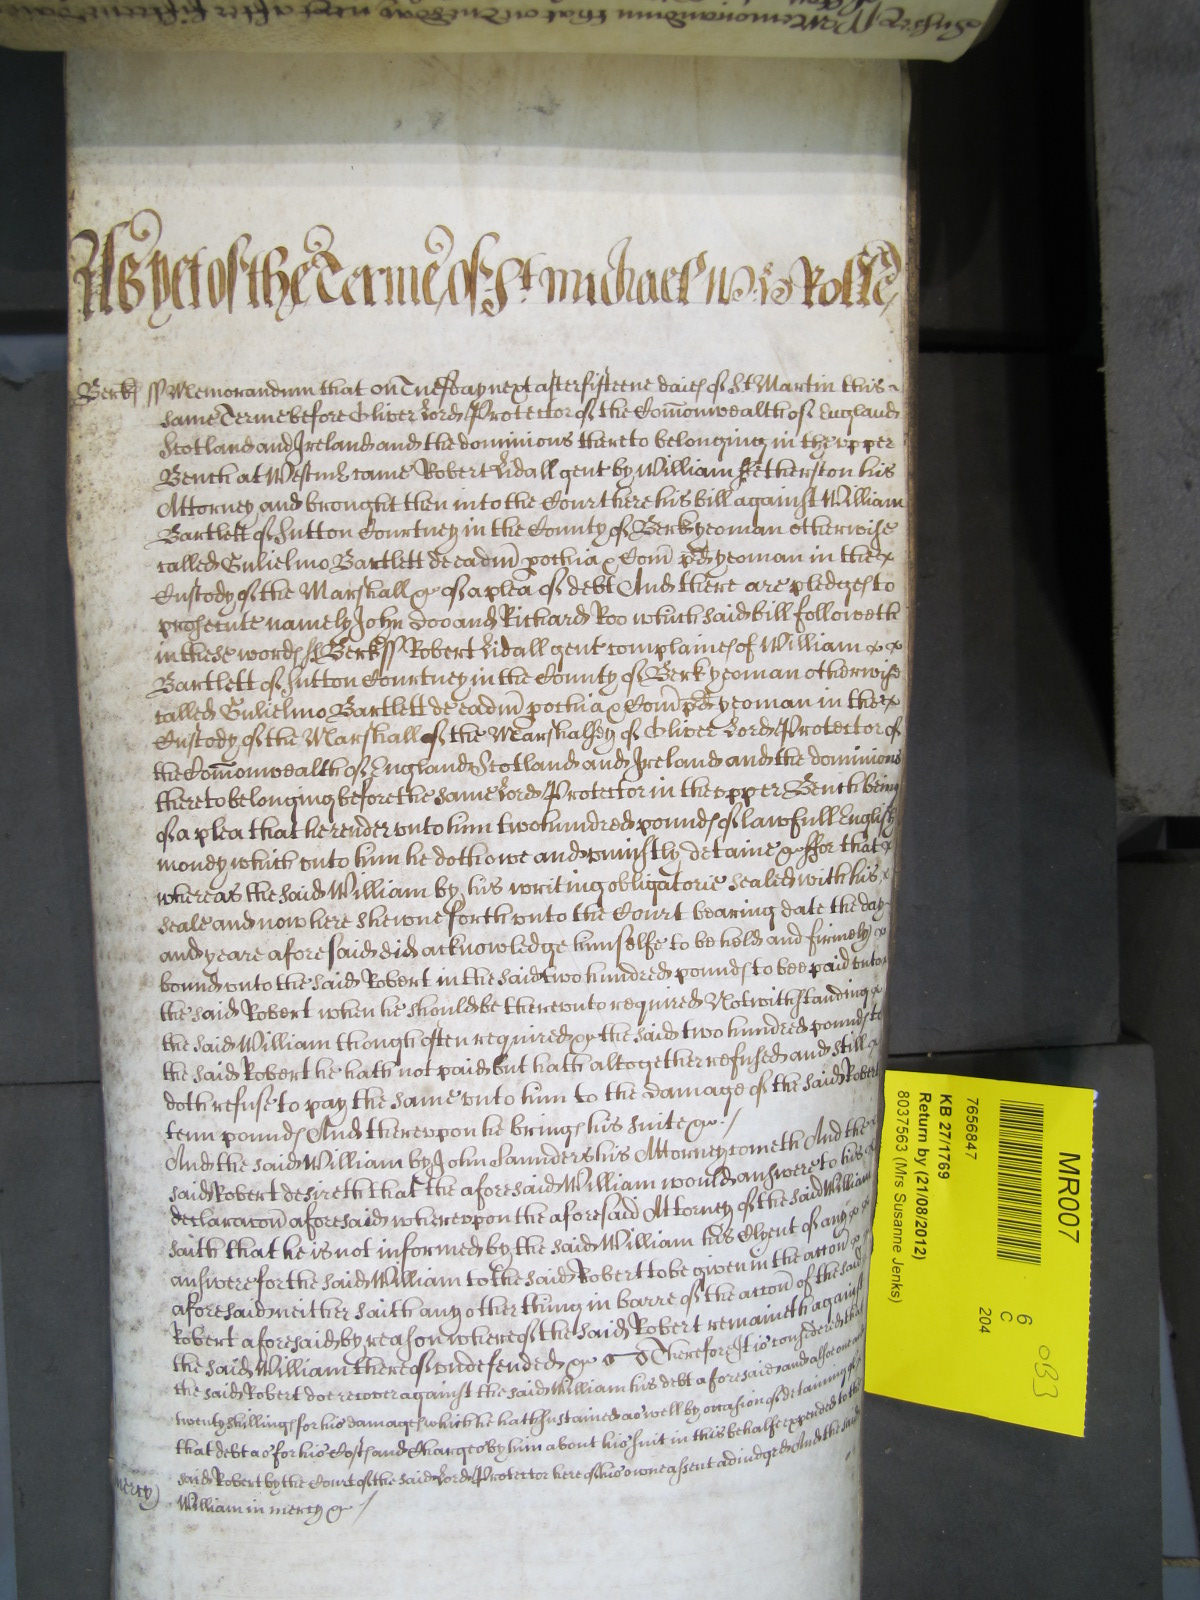 Sussex ss Memorandum that on Tuesday next after fifteene daies
As yet of the Terme of St Michael Wit: Rolle
Berks ss Memorandum that on Tuesday next after fifteene daies of St Martin this
same Terme before Oliver Lord Protector of the Com̄onwealth of England
Scotland and Ireland and the dominions thereto belonging in the vpper
Bench at Westmr came Robert Lidall gent by William Fetherston his
Attorney and brought then into the Court here his bill against William
Bartlett of Sutton Courtney in the County of Berk yeoman otherwise
called Gulielmo Bartlett de eadm̄ pochia & Com̄ pd yeoman in the
Custody of the Marshall &c of a plea of debt And there are pledges to
prosecute namely John Doo and Richard Roo which said bill followeth
in these words ss Berk ss Robert Lidall gent complaines of William
Bartlett of Sutton Courtney in the County of Berk yeoman otherwise
called Gulielmo Bartlett de eadm̄ pochia & Com̄ pd yeoman in the
Custody of the Marshall of the Marshalsey of Oliver Lord Protector of
the Com̄onwealth of England Scotland and Ireland and the dominions
thereto belonging before the same Lord Protector in the vpper Bench being
of a plea that he render vnto him two hundred pounds of lawfull English
money which vnto him he doth owe and vniustly detaine &c ffor that
whereas the said William by his writing obligatorie sealed with his
seale and now here shewne forth vnto the Court bearing date the day
and yeare aforesaid did acknowledge himselfe to be held and firmely
bound vnto the said Robert in the said two hundred pounds to bee paid vnto
the said Robert when he should be therevnto required Notwithstanding
the said William though often required &c the said two hundred pounds to
the said Robert he hath not paid but hath altogether refused and still
doth refuse to pay the same vnto him to the damage of the said Robert
tenn pounds And therevpon he brings his suite &c
And the said William by John Saunders his Attorney cometh And the
said Robert desireth that the aforesaid William would answere to his
declaracōn aforesaid wherevpon the aforesaid Attorney of the said William
saith that he is not informed by the said William his Clyent of any
answere for the said William to the said Robert to be given in the accōn
aforesaid neither saith any other thing in barre of the accōn of the said
Robert aforesaid by reason whereof the said Robert remaineth against
the said William thereof vndefended &c Therefore It is considered that
the said Robert doe recover against the said William his debt aforesaid and alsoe one and
twenty shillings for his damages which he hath sustained as well by occasion of detaining of
that debt as for his Costs and Charges by him about his suit in this behalfe expended to the
said Robert by the Court of the said Lord Protector here of his owne assent adiudged And the said
mercy
William in mercy &c
MR007
7656847
KB 27/1769
Return by (21/08/2012)
8037563 (Mrs Susanne Jenks)
6
C
204
OB3